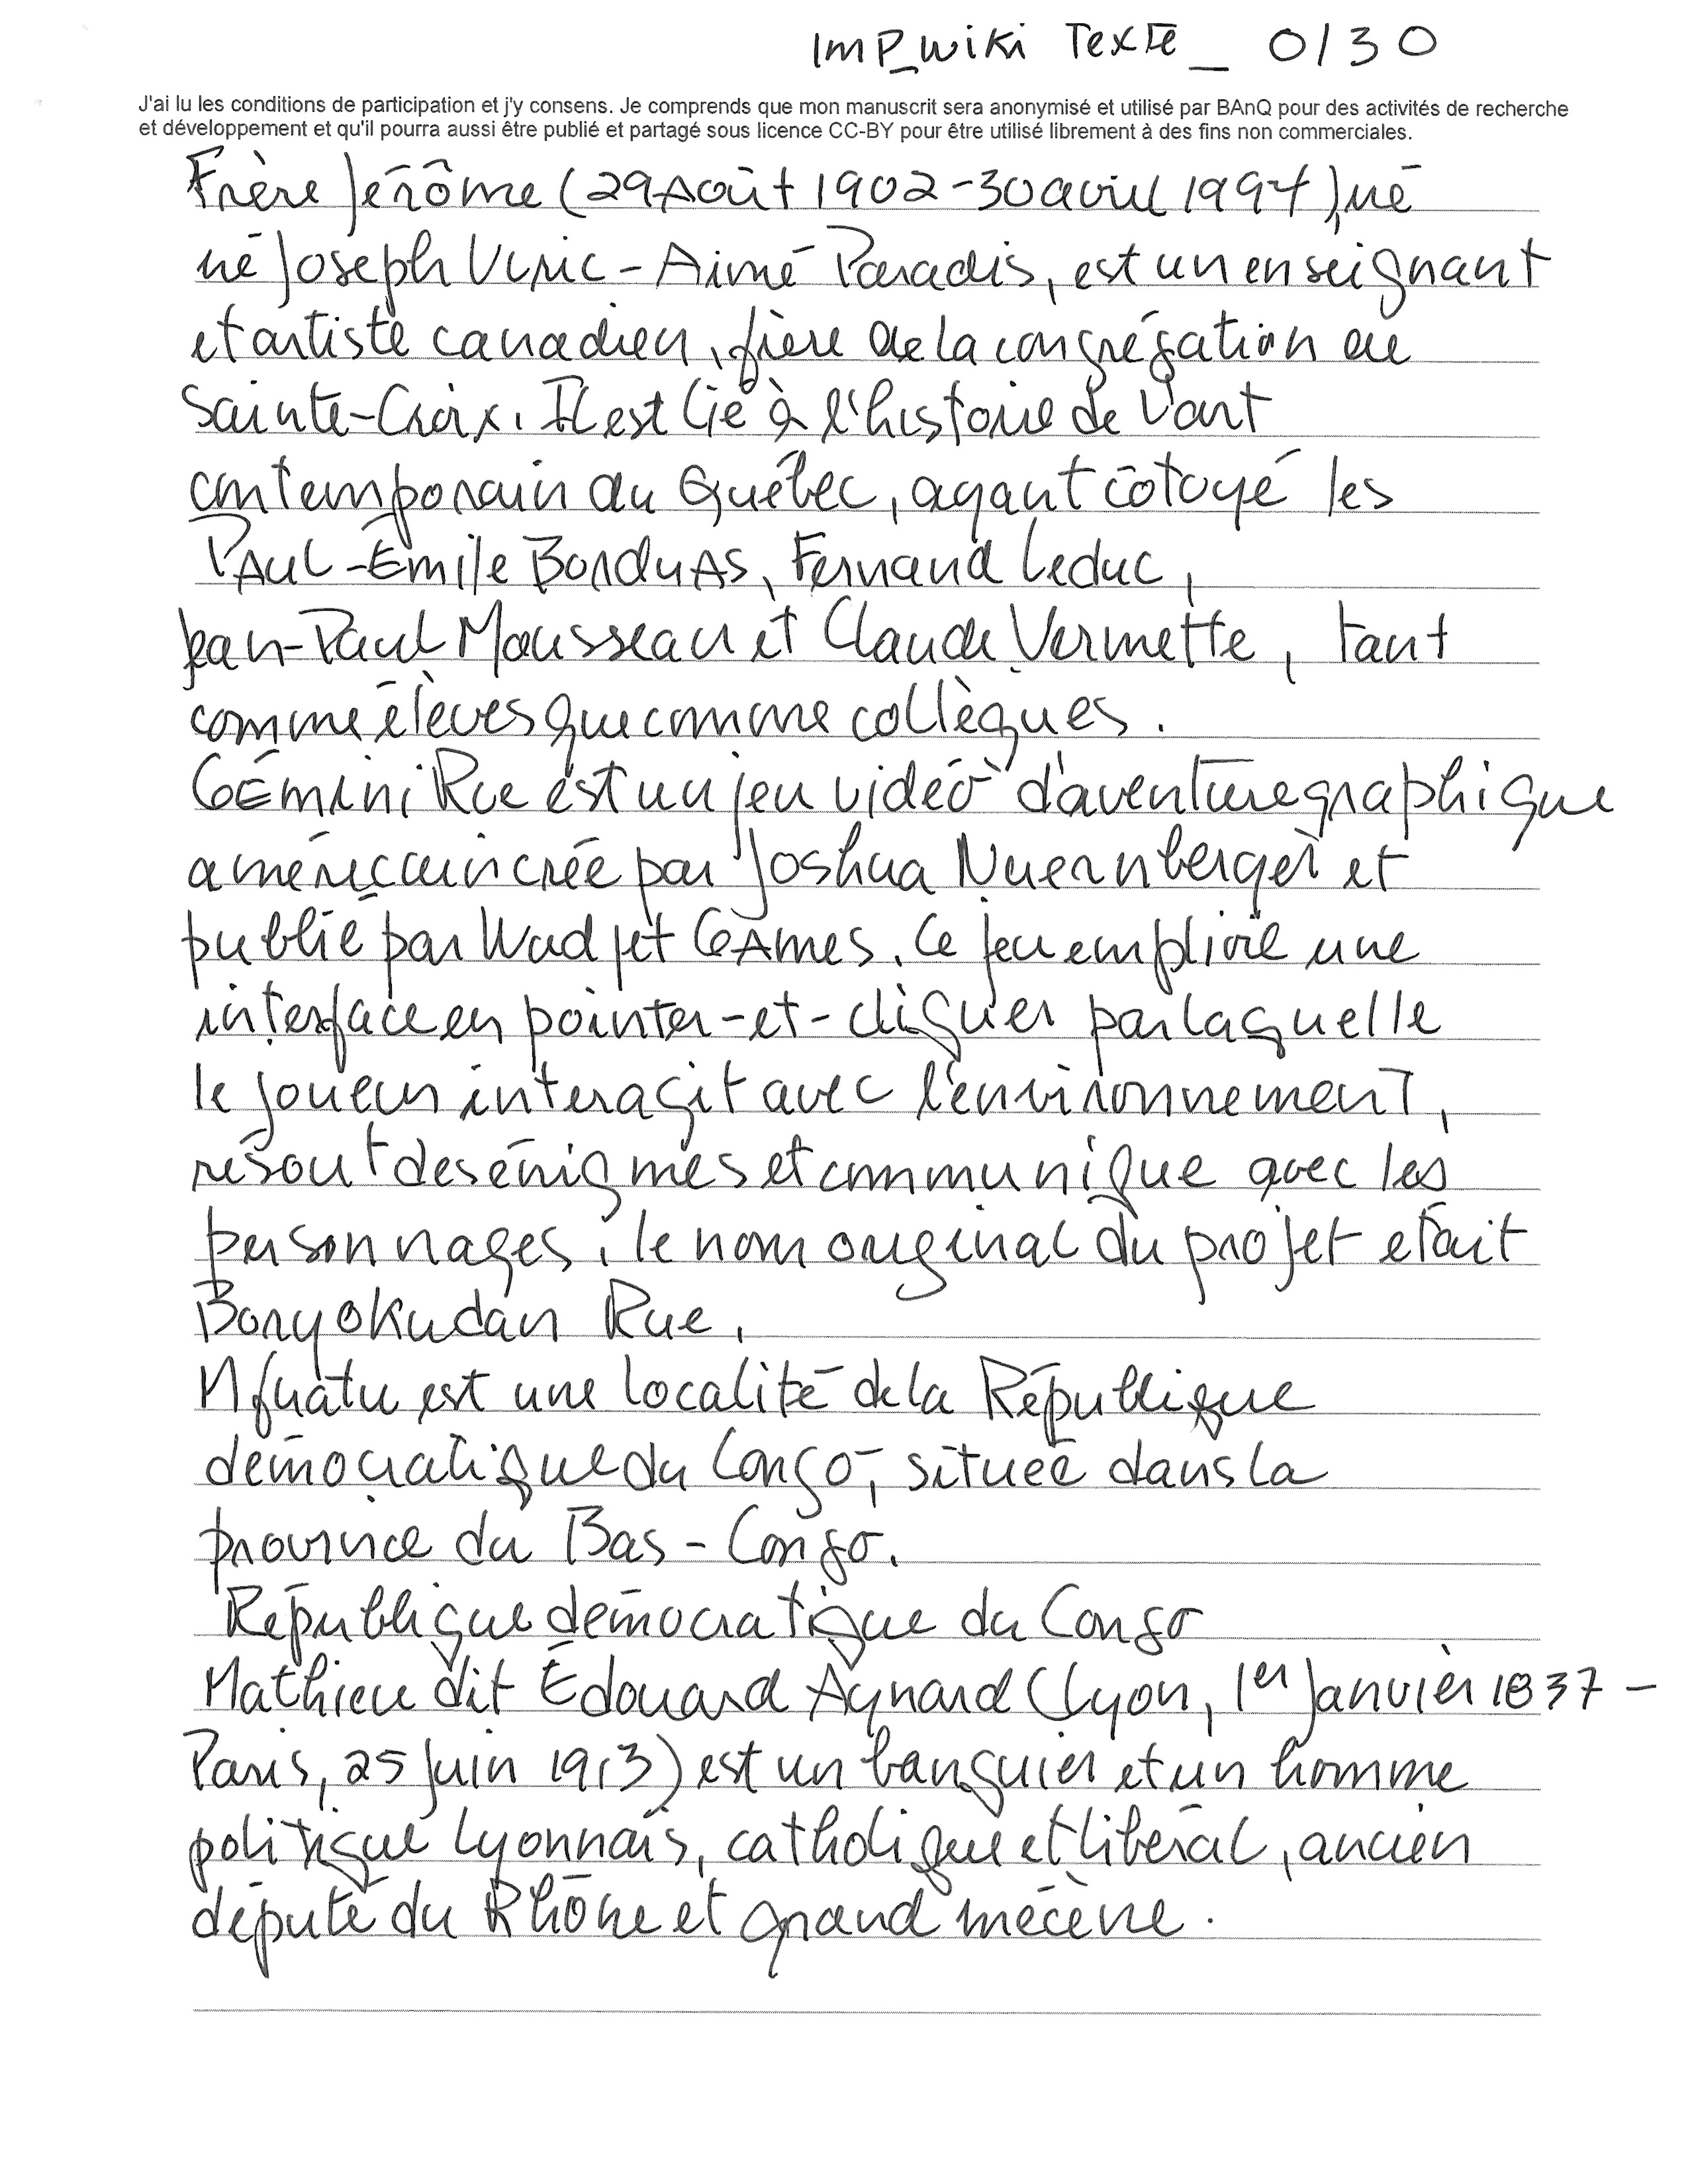 IMP_wiki Texte_ 0130
J'ai lu les conditions de participation et j'y consens. Je comprends que mon manuscrit sera anonymisé et utilisé par BAnQ pour des activités de recherche
et développement et qu'il pourra aussi être publié et partagé sous licence CC-BY pour être utilisé librement à des fins non commerciales.
Frère Jérôme (29 Août 1902-30 avril 1994), né
né Joseph Ulric-Aimé Paradis, est un enseignant
et artiste canadien, frère de la congrégation de
Sainte-Croix. Il est lié à l'histoire de l'art
contemporain du Québec, ayant côtoyé les
Paul-Émile Borduas, Fernand Leduc,
Jean-Paul Mousseau et Claude Vermette, tant
comme élèves que comme collègues.
Gémini Rue est un jeu vidéo d'aventure graphique
américain créé par Joshua Nuernberger et
publié par Wadjet Games. Ce jeu emploie une
interface en pointer-et-cliquer par laquelle
le joueur interagit avec l'environnement,
résout des énigmes et communique avec les
personnages. le nom original du projet etait
Boryokudan Rue.
Mfuatu est une localité de la République
démocratique du Congo, située dans la
province du Bas-Congo.
République démocratique du Congo
Mathieu dit Édouard Aynard (Lyon, 1er Janvier 1837 -
Paris, 25 Juin 1913) est un banquier et un homme
politique lyonnais, catholique et libéral, ancien
député du Rhône et grand mécène.